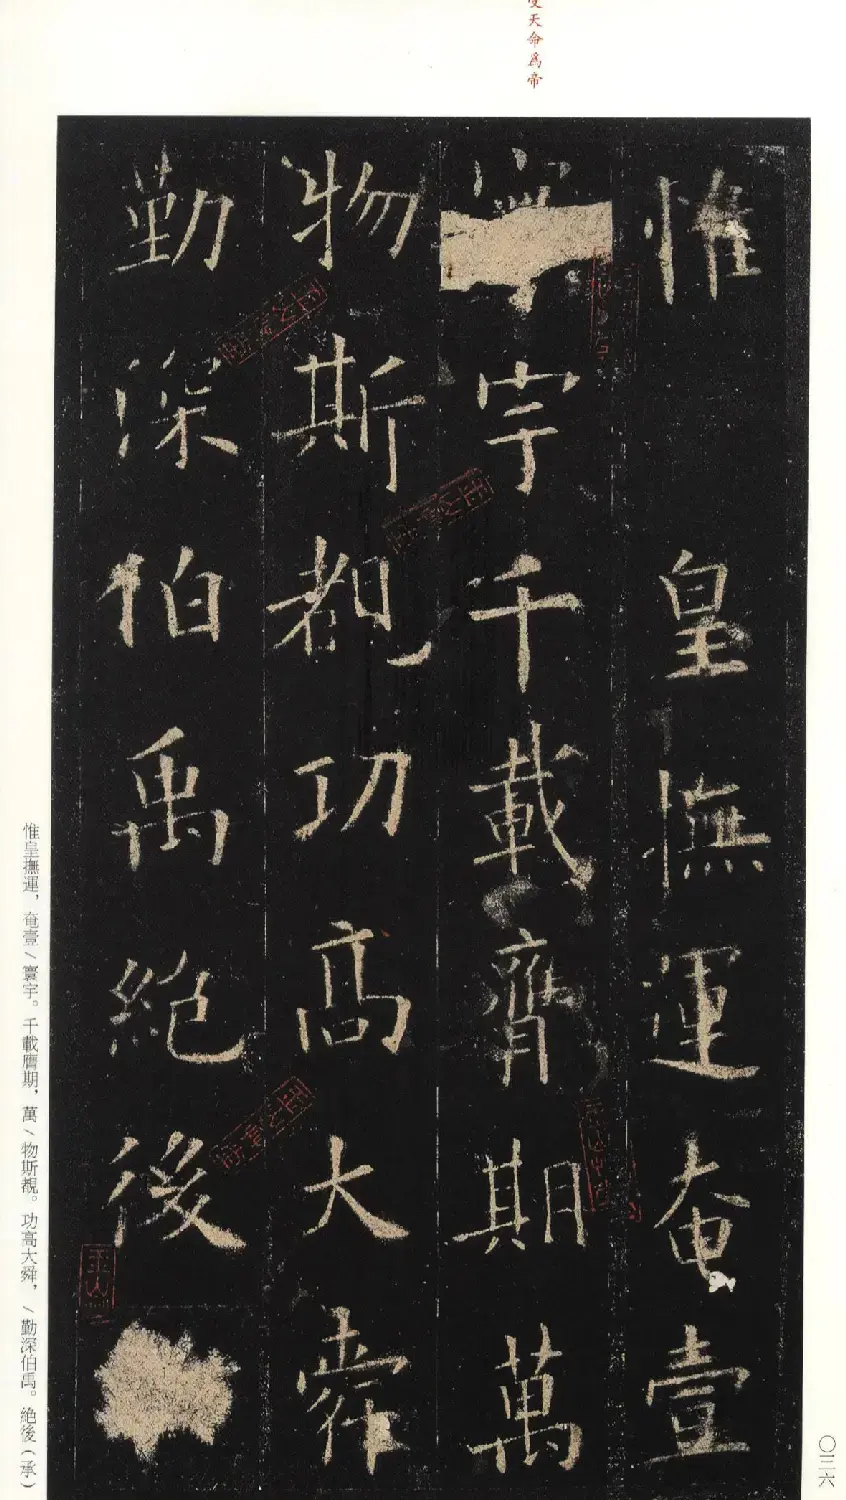 天命爲帝
惟皇撫運奄壹
宇千載膺期萬
物斯覩功高大舜
勤深伯禹絕後
惟皇撫運，奄壹／寰宇。千載膺期，萬／物斯覩。功高大舜，／勤深伯禹。絕後（承）
〇三六